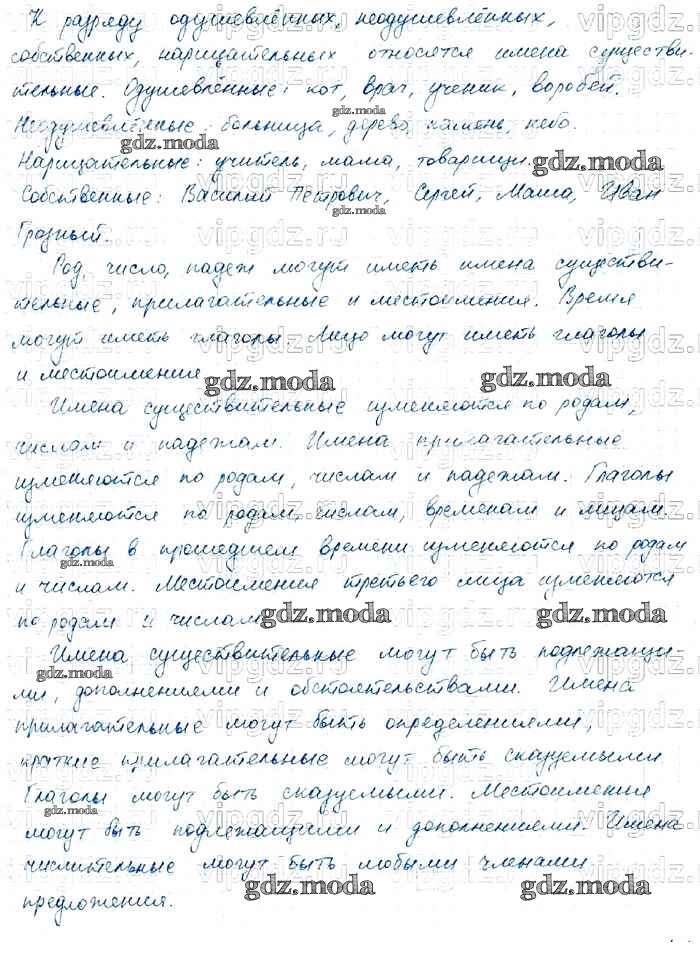 К разряду одушевлённых, неодушевлённых,
собственных, нарицательных относятся имена существи-
тельные. Одушевлённые: кот, врач, ученик, воробей.
Неодушевлённые: больница, дерево, камень, небо.
Нарицательные: учитель, мама, товарищи.
Собственные: Василий Петрович, Сергей, Маша, Иван
Грозный.
Род, число, падеж могут иметь имена существи-
тельные, прилагательные и местоимения. Время
могут иметь глаголы. Лицо могут иметь глаголы
и местоимения
Имена существительные изменяются по родам,
числам и падежам. Имена прилагательные
изменяются по родам, числам и падежам. Глаголы
изменяются по родам, числам, временам и лицам.
Глаголы в прошедшем времени изменяются по родам
и числам. Местоимения третьего лица изменяются
по родам и числам
Имена существительные могут быть подлежащи-
ми, дополнениями и обстоятельствами. Имена
прилагательные могут быть определениями,
краткие прилагательные могут быть сказуемыми.
Глаголы могут быть сказуемыми. Местоимения
могут быть подлежащими и дополнениями. Имена
числительные могут быть любыми членами
предложения.